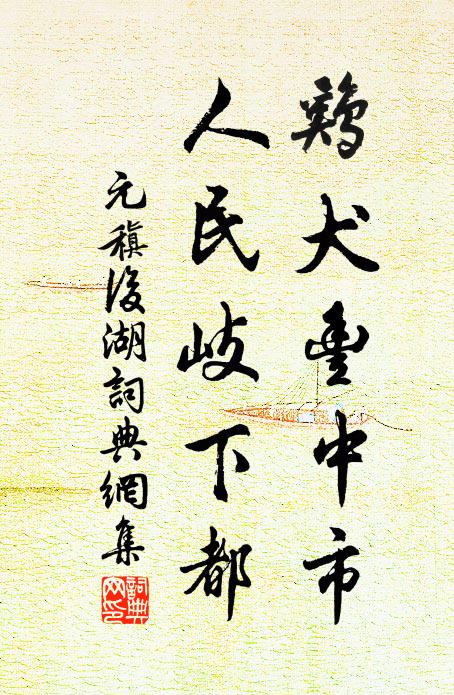 鷄犬豐中市
人民岐下都
元稹後湖詞典網集
詞典网印